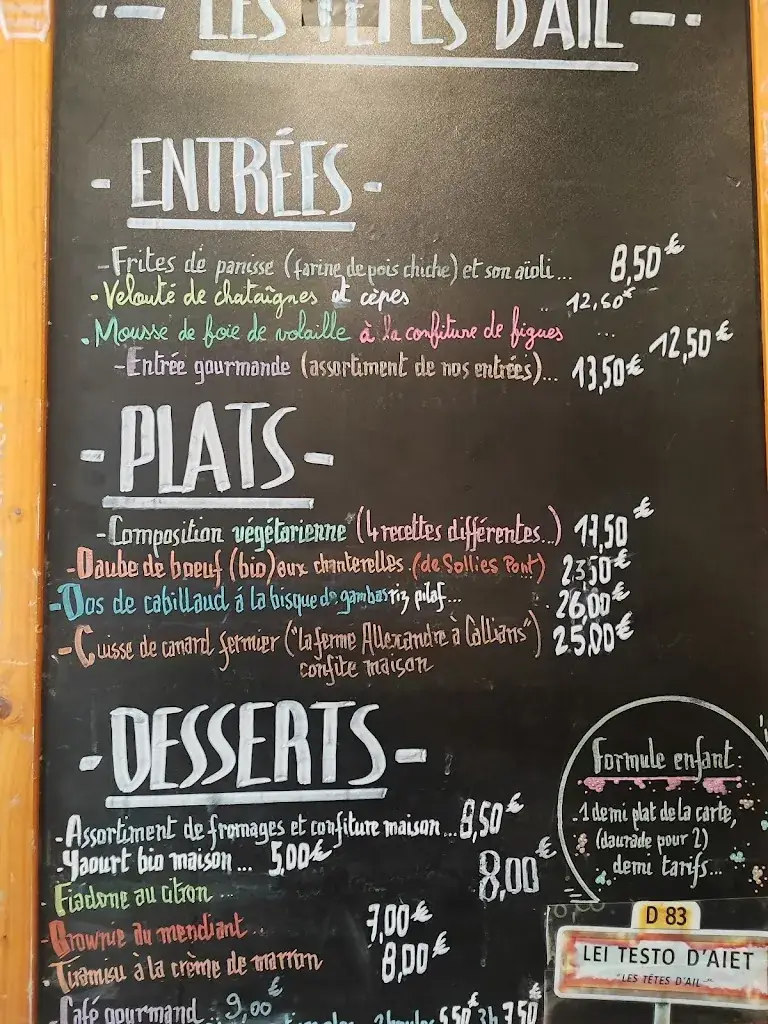 LES TÊTES D'AIL
- ENTRÉES -
- Frites de panisse (farine de pois chiche) et son aïoli... 8,50€
. Velouté de chataîgnes et cèpes .. 12,50€
. Mousse de foie de volaille à la confiture de figues ... 12,50€
- Entrée gourmande (assortiment de nos entrées)... 13,50€
- PLATS -
- Composition végétarienne (4 recettes différentes...) 17,50€
- Daube de boeuf (bio) aux chanterelles (de Sollies Pont) 23,50€
- Dos de cabillaud á la bisque de gambas riz pilaf... 26,00€
- Cuisse de canard fermier ("la ferme Allexandre à Callians") 25,00€
confite maison
- DESSERTS -
- Assortiment de fromages et confiture maison... 8,50€
- Yaourt bio maison ... 5,00€
- Fiadone au citron ... 8,00€
- Brownie du mendiant .. 7,00€
- Tiramisu à la crème de marron 8,00€
- Café gourmand .. 9,00€
2 boules 5,50€ 3b 7,50€
Formule enfant:
. 1 demi plat de la carte,
(daurade pour 2)
demi tarifs...
D 83
LEI TESTO D'AIET
"LES TÊTES D'AIL"